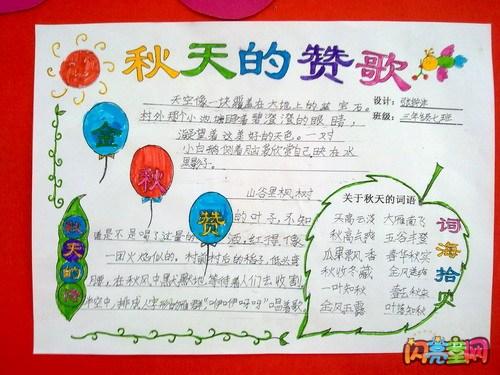 秋天的赞歌
天空像一块覆盖在大地上的蓝宝石。
村外那个小池塘睁着碧澄澄的眼睛,
凝望着这美好的天色。一对
小白鹅侧着脑袋欣赏自己映在水
里影子。
设计:
班级: 三年级七班
金
秋
赞
山谷里枫树
的叶子,不知
谁是不是喝了过量的酒,红得像
一团火似的。村前村后的稻子,低头弯
腰,在秋风中默默地等待着人们去收割
半空中,排成人字形的雁群,"咿咿呀呀"唱着歌
秋天的诗
关于秋天的词语
天高云淡 大雁南飞
秋高气爽 五谷丰登
瓜果飘香 春华秋实
秋收冬藏 金风送爽
一叶知秋
金风玉露 叶落知秋
词海拾贝
闪亮童网